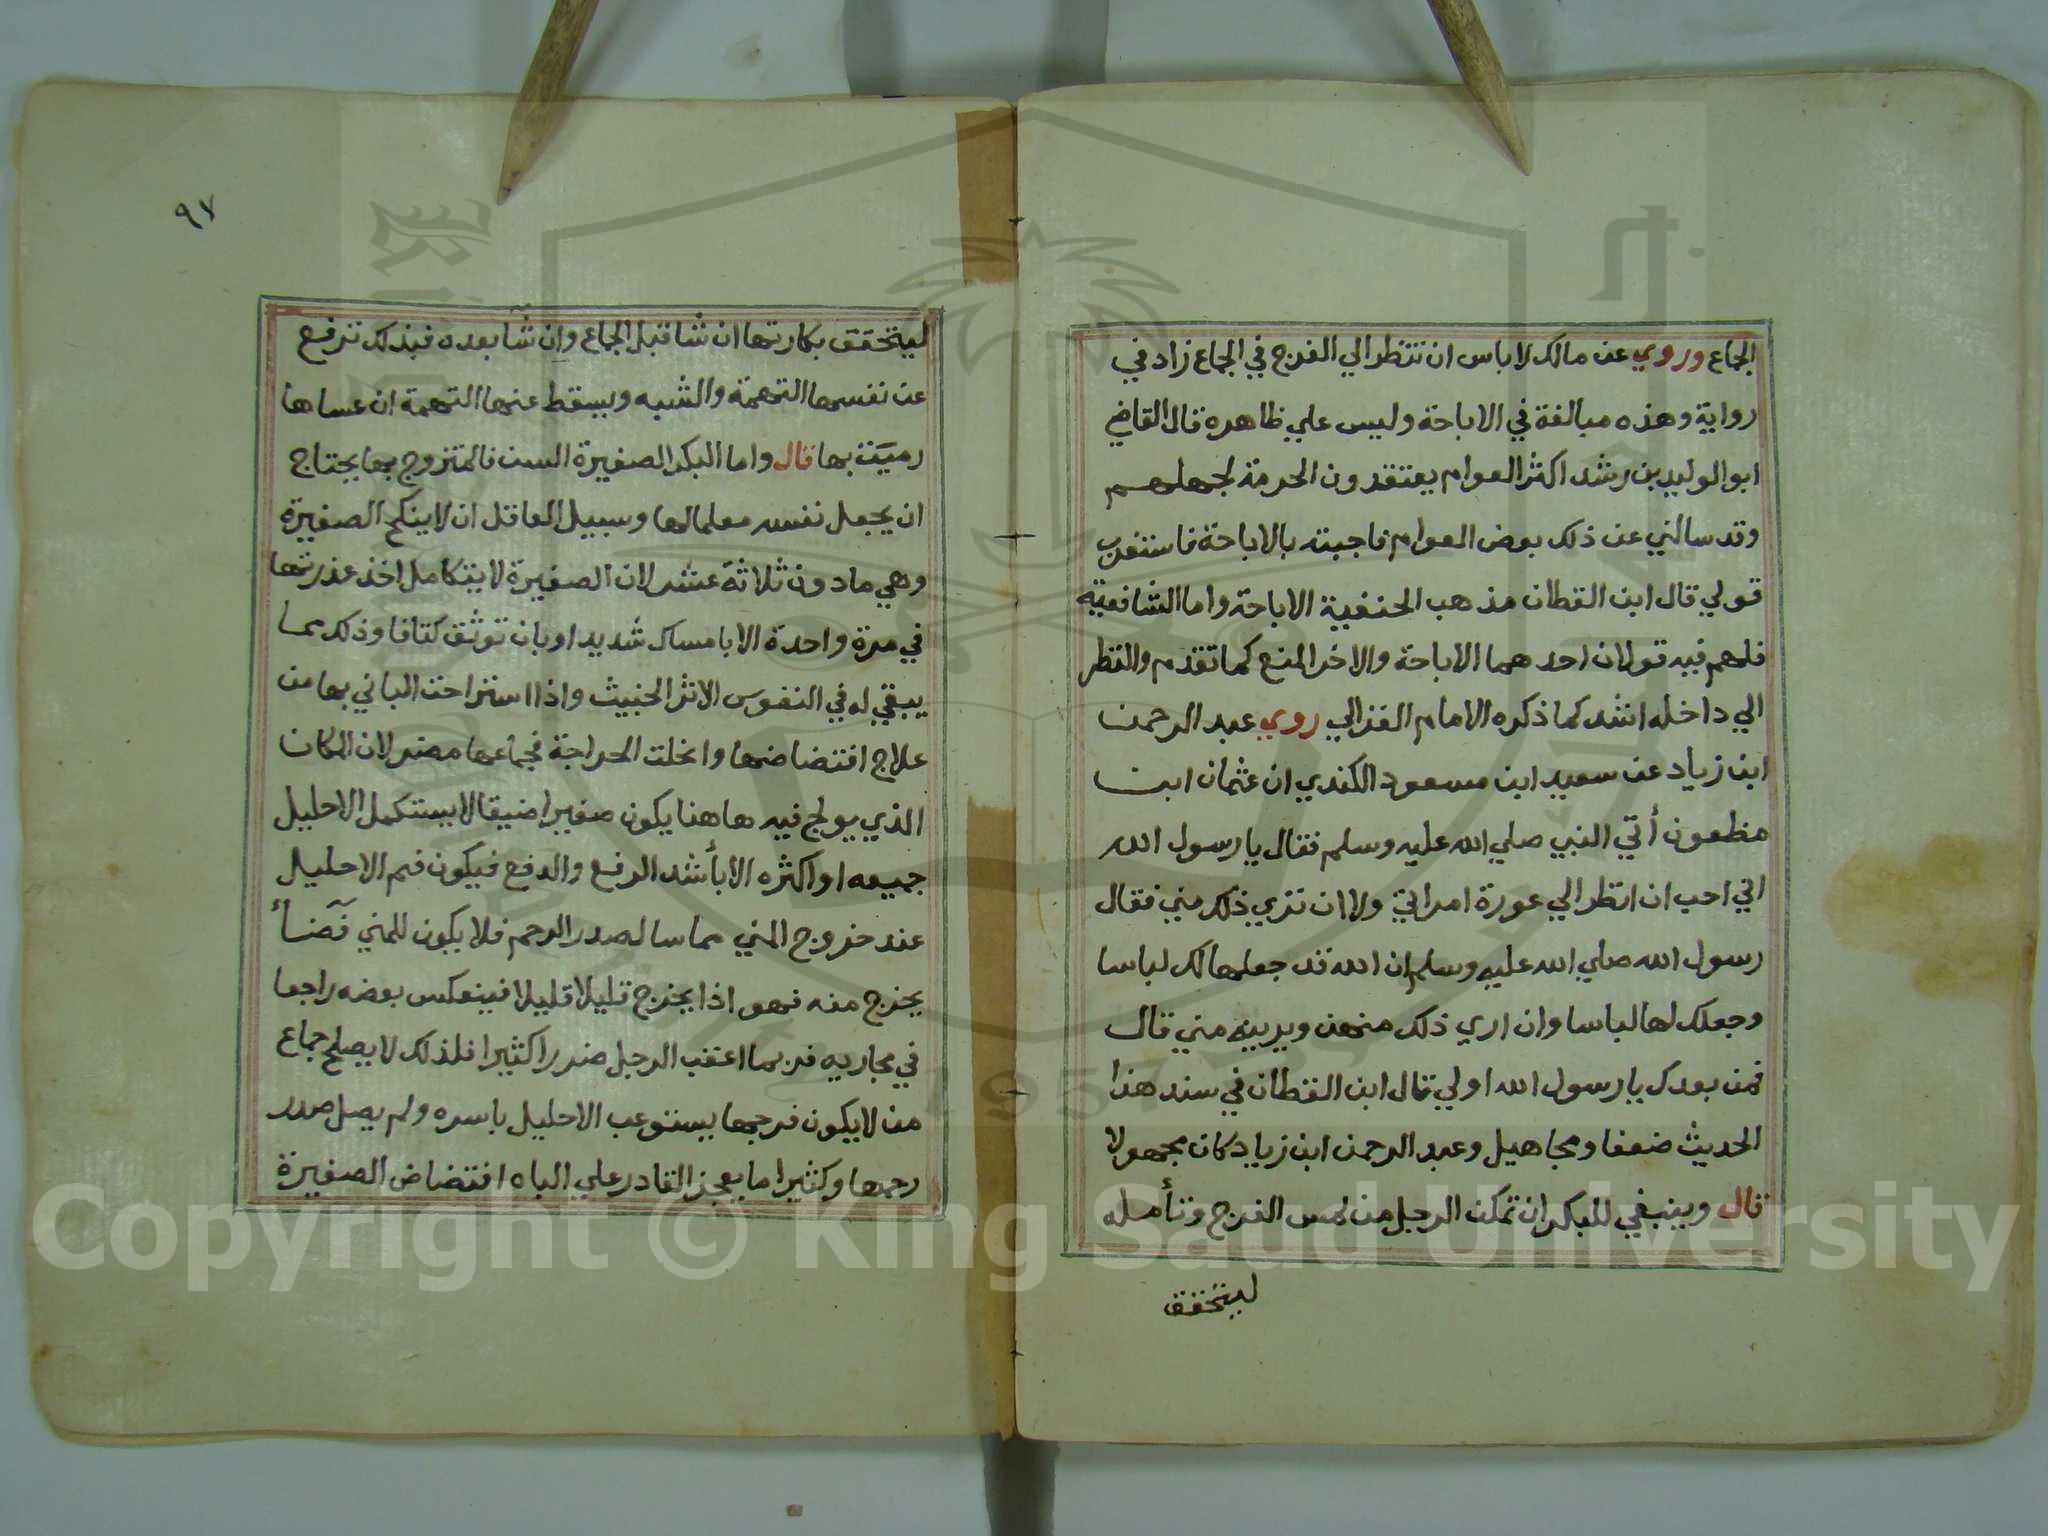 الجماع وروي عن مالك لا باس ان تنظر الي الفرج في الجماع زاد في
رواية وهذه مبالغة في الاباحة وليس علي ظاهره قال القاضي
ابو الوليد بن رشد اكثر العوام يعتقدون الحرمة لجهلهم
وقد سالني عن ذلك بعض العوام فاجبته بالاباحة فاستغرب
قولي قال ابن القطان مذهب الحنفية الاباحة واما الشافعية
فلهم فيه قولان احدهما الاباحة والاخر المنع كما تقدم والنظر
الي داخله اشد كما ذكره الامام الغزالي روي عبد الرحمن
ابن زياد عن سعيد ابن مسعود الكندي ان عثمان ابن
مظعون أتي النبي صلي الله عليه وسلم فقال يا رسول الله
اني احب ان انظر الي عورة امراتي ولا ان تري ذلك مني فقال
رسول الله صلي الله عليه وسلم ان الله قد جعلها لك لباسا
وجعلك لها لباسا وان اري ذلك منهن ويرينه مني قال
فمن بعدك يا رسول الله اولي قال ابن القطان في سند هذا
الحديث ضعفا ومجاهيل وعبد الرحمن ابن زياد كان مجهولا
قال وينبغي للبكر ان تمكن الرجل من لمس الفرج وتأمله
ليتحقق
٩٧
ليتحقق بكارتها ان شا قبل الجماع وان شآ بعده فبذلك ترفع
عن نفسها التهمة والشبه ويسقط عنها التهمة ان عساها
رميت بها قال واما البكر الصغيرة السن فالمتزوج بها يحتاج
ان يجعل نفسه معلما لها وسبيل العاقل ان لا ينكح الصغيرة
وهي ما دون ثلاثة عشر لان الصغيرة لا يتكامل اخذ عذرتها
في مرة واحدة الا بامساك شديد او بان توثق كتافا وذلك مما
يبقي له في النفوس الاثر الخبيث واذا استراحت الباني بها من
علاج افتضاضها وانحلت الحراجة فجماعها مضر لان المكان
الذي يولج فيه هاهنا يكون صغيرا ضيقا لا يستكمل الاحليل
جميعه او اكثره الا بأشد الرفع والدفع فيكون فم الاحليل
عند خروج المني مماسا لصدر الرحم فلا يكون للمني فضآأ
يخرج منه فهو اذا يخرج قليلا قليلا فينعكس بعضه راجعا
في مجاريه فربما اعقب الرجل ضررا كثيرا فلذلك لا يصلح جماع
من لا يكون فرجها يستوعب الاحليل باسره ولم يصل صدر
رحمها وكثيرا ما يعجز القادر علي الباه افتضاض الصغيرة
Copyright © King Saud University
1957